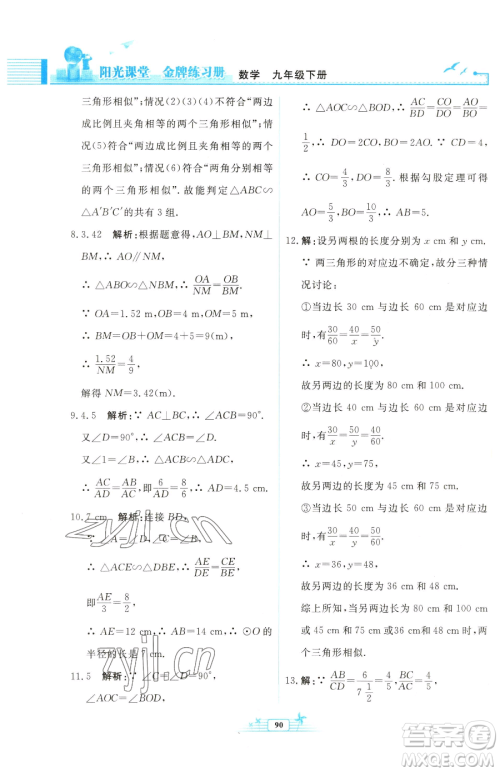 阳光课堂 金牌练习册 数学 九年级下册
三角形相似”；情况(2)(3)(4)不符合“两边
成比例且夹角相等的两个三角形相似”；情
况(5)符合“两边成比例且夹角相等的两个
三角形相似”；情况(6)符合“两角分别相等
的两个三角形相似”. 故能判定△ABC∽
△A'B'C'的共有 3 组.
8.3.42 解析：根据题意得，AO⊥BM，NM⊥
BM，∴ AO∥NM.
∴ △ABO∽△NBM，∴ OA/NM=OB/BM.
∵ OA=1.52 m，OB=4 m，OM=5 m，
∴ BM=OB+OM=4+5=9(m)，
∴ 1.52/NM=4/9，
解得 NM=3.42(m).
9.4.5 解析：∵ AC⊥BC，∴ ∠ACB=90°.
又∠D=90°，∴ ∠ACB=∠D.
又∠B=∠ACD，∴ △ABC∽△ACD，
∴ AC/AD=AB/AC，即6/AD=8/6，∴ AD=4.5 cm.
10.7 cm 解析：连接 BD，
∵ ∠A=∠C，∠AED=∠CEB，
∴ △AED∽△CEB，∴ AE/DE=CE/BE，
即AE/3=8/2，
∴ AE=12 cm，∴ AB=14 cm，∴ ⊙O 的
半径的长是 7 cm.
11.5 解析：∵ ∠A=∠B=90°，
∠AOC=∠BOD，
∴ △AOC∽△BOD，∴ AC/BD=CO/DO=AO/BO=
1/2，∴ DO=2CO，BO=2AO. ∵ CD=4，
∴ CO=4/3，DO=8/3. 故根据勾股定理可得
∴ AO=5/3，BO=10/3. ∴ AB=AO+BO=5.
12.解：设另两根的长度分别为 x cm 和 y cm.
∵ 两三角形的对应边不确定，故分三种情
况讨论：
①当边长 30 cm 与边长 60 cm 是对应边
时，有30/60=40/x=50/y，
∴ x=80，y=100，
故另两边的长度为 80 cm 和 100 cm.
②当边长 40 cm 与边长 60 cm 是对应边
时，有30/x=40/60=50/y，
∴ x=45，y=75，
故另两边的长度为 45 cm 和 75 cm.
③当边长 50 cm 与边长 60 cm 是对应边
时，有30/x=40/y=50/60，
∴ x=36，y=48，
故另两边的长度为 36 cm 和 48 cm.
综上所知，当另两边的长度为 80 cm 和
100 cm 或 45 cm 和 75 cm 或 36 cm 和
48 cm 时，两个三角形的三边对应成比例，
两个三角形相似.
13.解：∵ AB/CD=6/(7 1/2)，BC/AC=
90
zyjl.cn
zyjl.cn